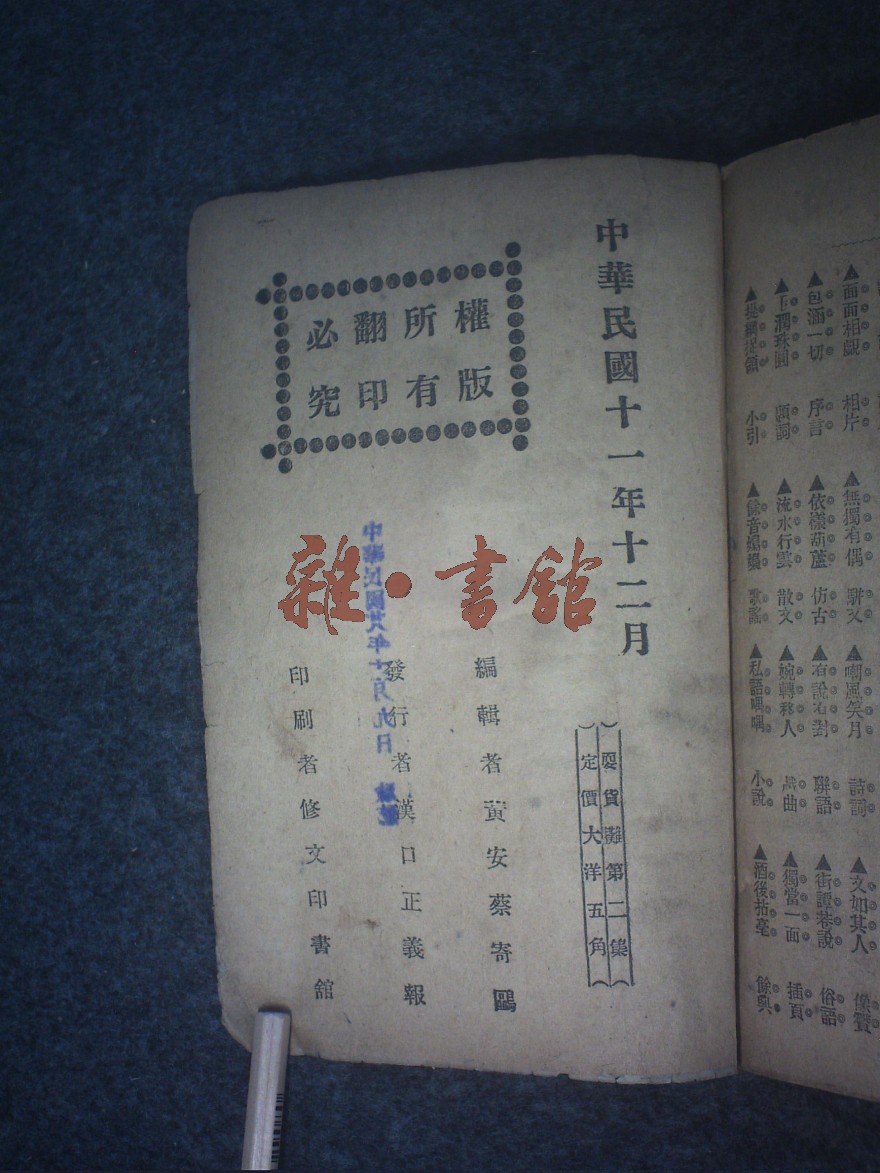 中華民國十一年十二月
耍貨攤第二集
定價大洋五角
權版
所有
翻印
必究
編輯者黃安蔡寄鷗
發行者漢口正義報
印刷者修文印書館
中華民國廿八年十月九日
雜·書館
▲面面相觀 相片
▲包涵一切 序言
▲玉潤珠圓 題詞
▲提綱挈領 小引
▲無獨有偶 駢文
▲依樣葫蘆 仿古
▲流水行雲 散文
▲餘音嫋嫋 歌謠
▲嘲風笑月 詩詞
▲有說有對 聯語
▲婉轉移人 戲曲
▲私語喁喁 小說
▲文如其人 像贊
▲街譚巷說 俗語
▲獨當一面 插頁
▲酒後拈毫 餘興